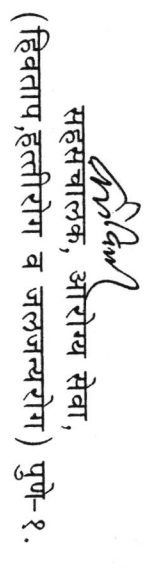 सहसंचालक, आरोग्य सेवा,
(हिवताप,हत्तीरोग व जलजन्यरोग) पुणे-१.